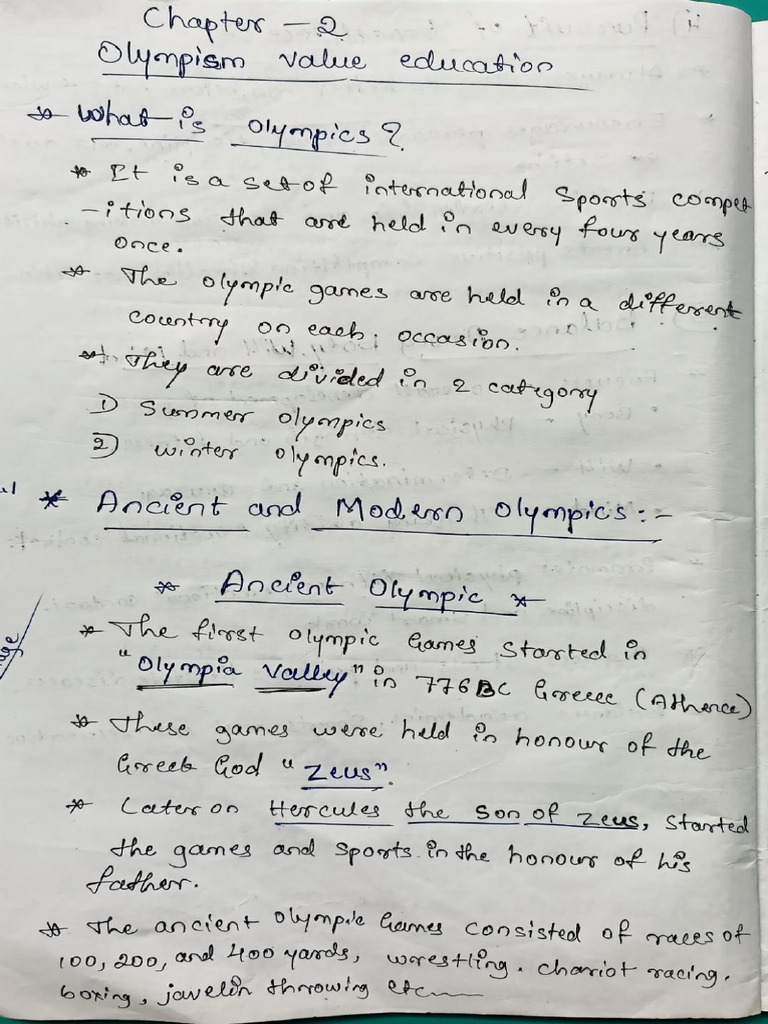 Chapter - 2
Olympism value education
* What is Olympics?
* It is a set of international Sports compet
-itions that are held in every four years
once.
* The olympic games are held in a different
country on each occasion.
* They are divided in 2 category
1) Summer olympics
2) winter olympics.
* Ancient and Modern Olympics:-
* Ancient Olympic *
* The first olympic Games started in
"Olympia valley" in 776 BC Greece (Athence)
* These games were held in honour of the
Greek God "Zeus".
* Later on Hercules the son of Zeus, started
the games and sports in the honour of his
father.
* The ancient olympic Games consisted of races of
100, 200, and 400 yards, wrestling. chariot racing.
boxing, javelin throwing etc